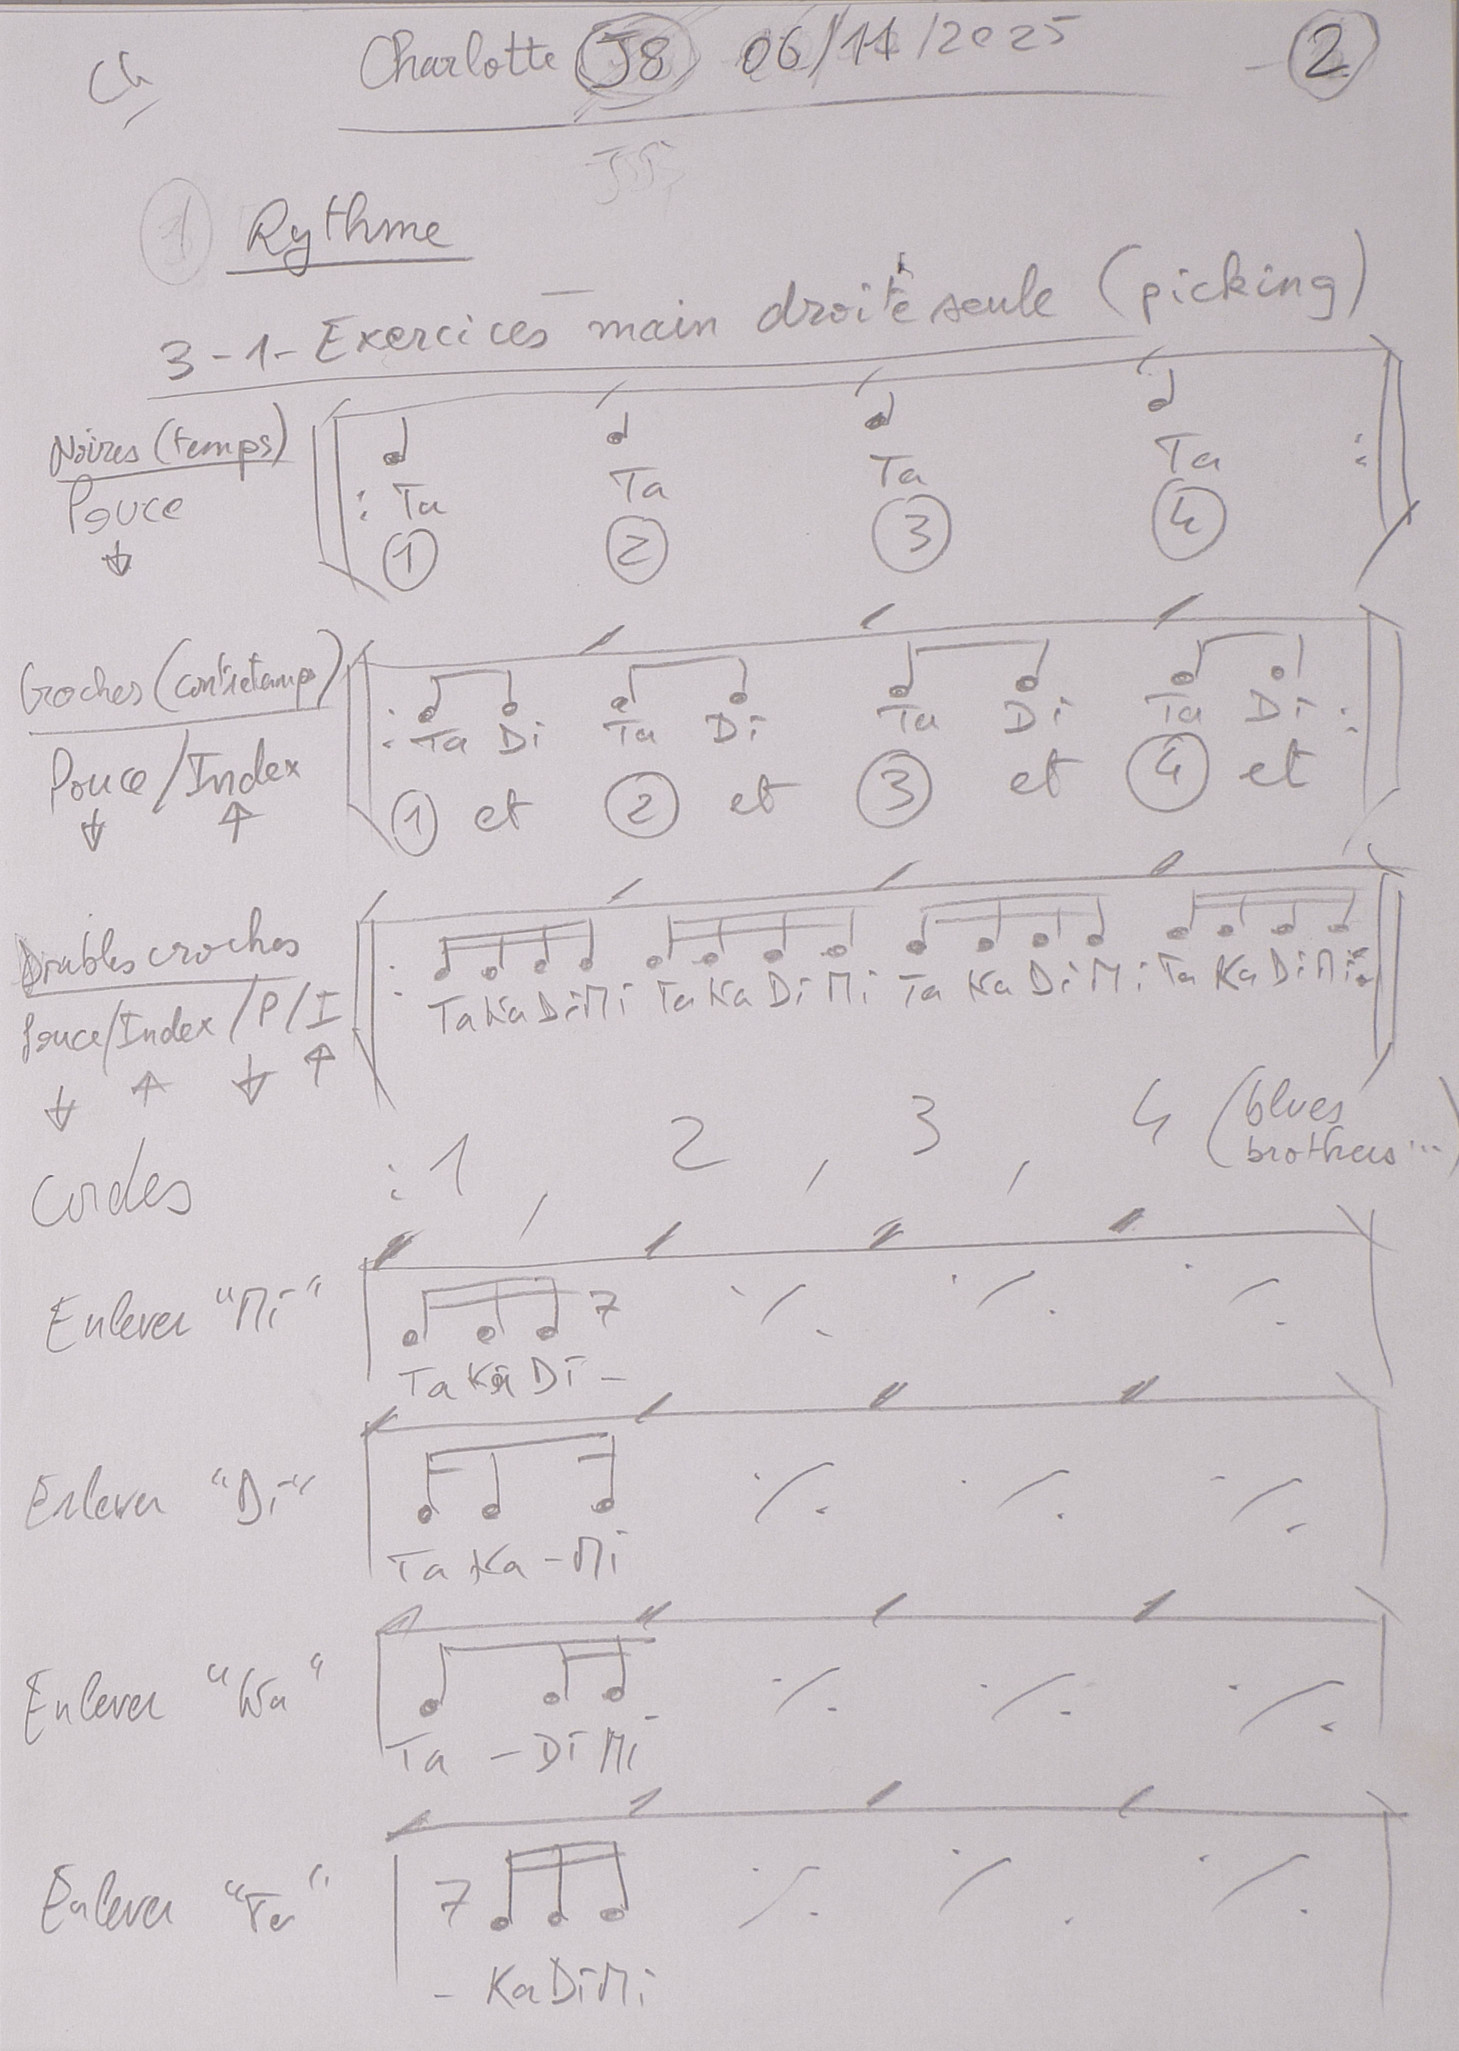 Ch Charlotte J8 06/11/2025 2
1 Rythme
3-1- Exercices main droite seule (picking)
Noires (temps)
Pouce
: Ta Ta Ta Ta :
1 2 3 4
Croches (contretemps)
Pouce / Index
: Ta Di Ta Di Ta Di Ta Di :
1 et 2 et 3 et 4 et
Doubles croches
Pouce/Index/P/I
: Ta Ka Di Mi Ta Ka Di Mi Ta Ka Di Mi Ta Ka Di Mi :
Cordes : 1, 2, 3, 4 (blues brothers...)
Enlever "Mi"
7 ٪ ٪ ٪
Ta Ka Di -
Enlever "Di"
٪ ٪ ٪
Ta Ka - Mi
Enlever "Ka"
٪ ٪ ٪
Ta - Di Mi
Enlever "Ta"
7 ٪ ٪ ٪
- Ka Di Mi